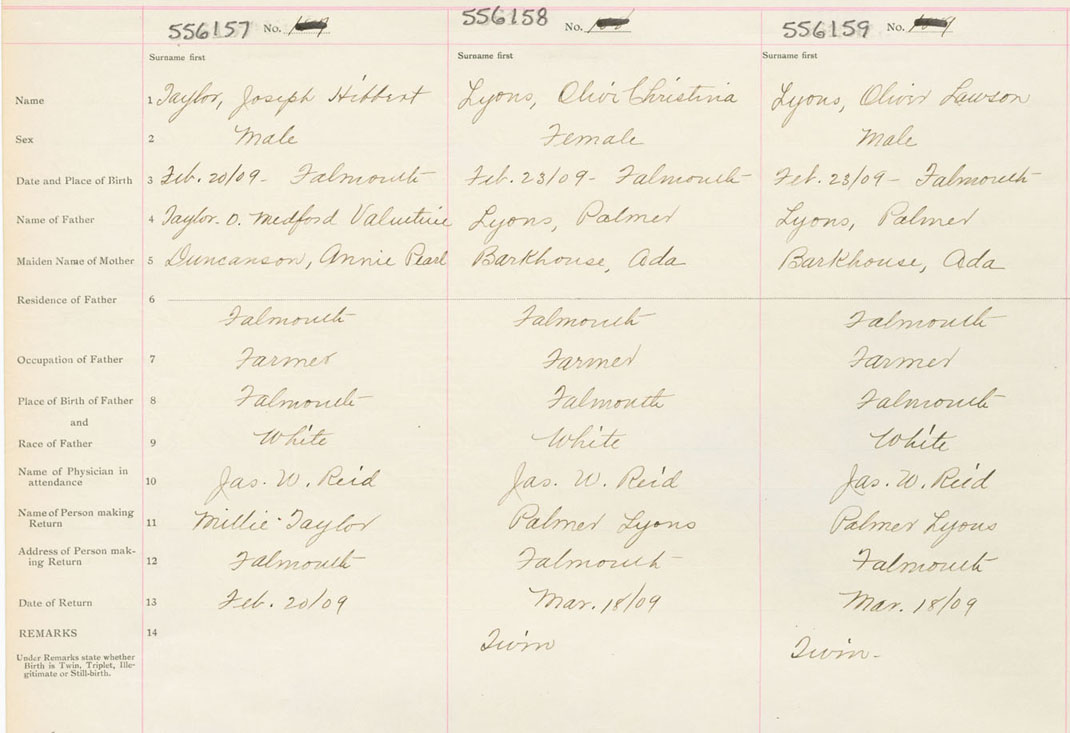 556157 No. 556158 No. 556159 No.
Surname first Surname first Surname first
Name 1 Taylor, Joseph Hibbert Lyons, Olivi Christina Lyons, Oliver Lawson
Sex 2 Male Female Male
Date and Place of Birth 3 Feb. 20/09 - Falmouth Feb. 23/09 - Falmouth Feb. 23/09 - Falmouth
Name of Father 4 Taylor. O. Medford Valentine Lyons, Palmer Lyons, Palmer
Maiden Name of Mother 5 Duncanson, Annie Pearl Barkhouse, Ada Barkhouse, Ada
Residence of Father 6
Falmouth Falmouth Falmouth
Occupation of Father 7 Farmer Farmer Farmer
Place of Birth of Father 8 Falmouth Falmouth Falmouth
and
Race of Father 9 White White White
Name of Physician in
attendance 10 Jas. W. Reid Jas. W. Reid Jas. W. Reid
Name of Person making
Return 11 Millie Taylor Palmer Lyons Palmer Lyons
Address of Person mak-
ing Return 12 Falmouth Falmouth Falmouth
Date of Return 13 Feb. 20/09 Mar. 18/09 Mar. 18/09
REMARKS 14 Twin Twin -
Under Remarks state whether
Birth is Twin, Triplet, Ille-
gitimate or Still-birth.